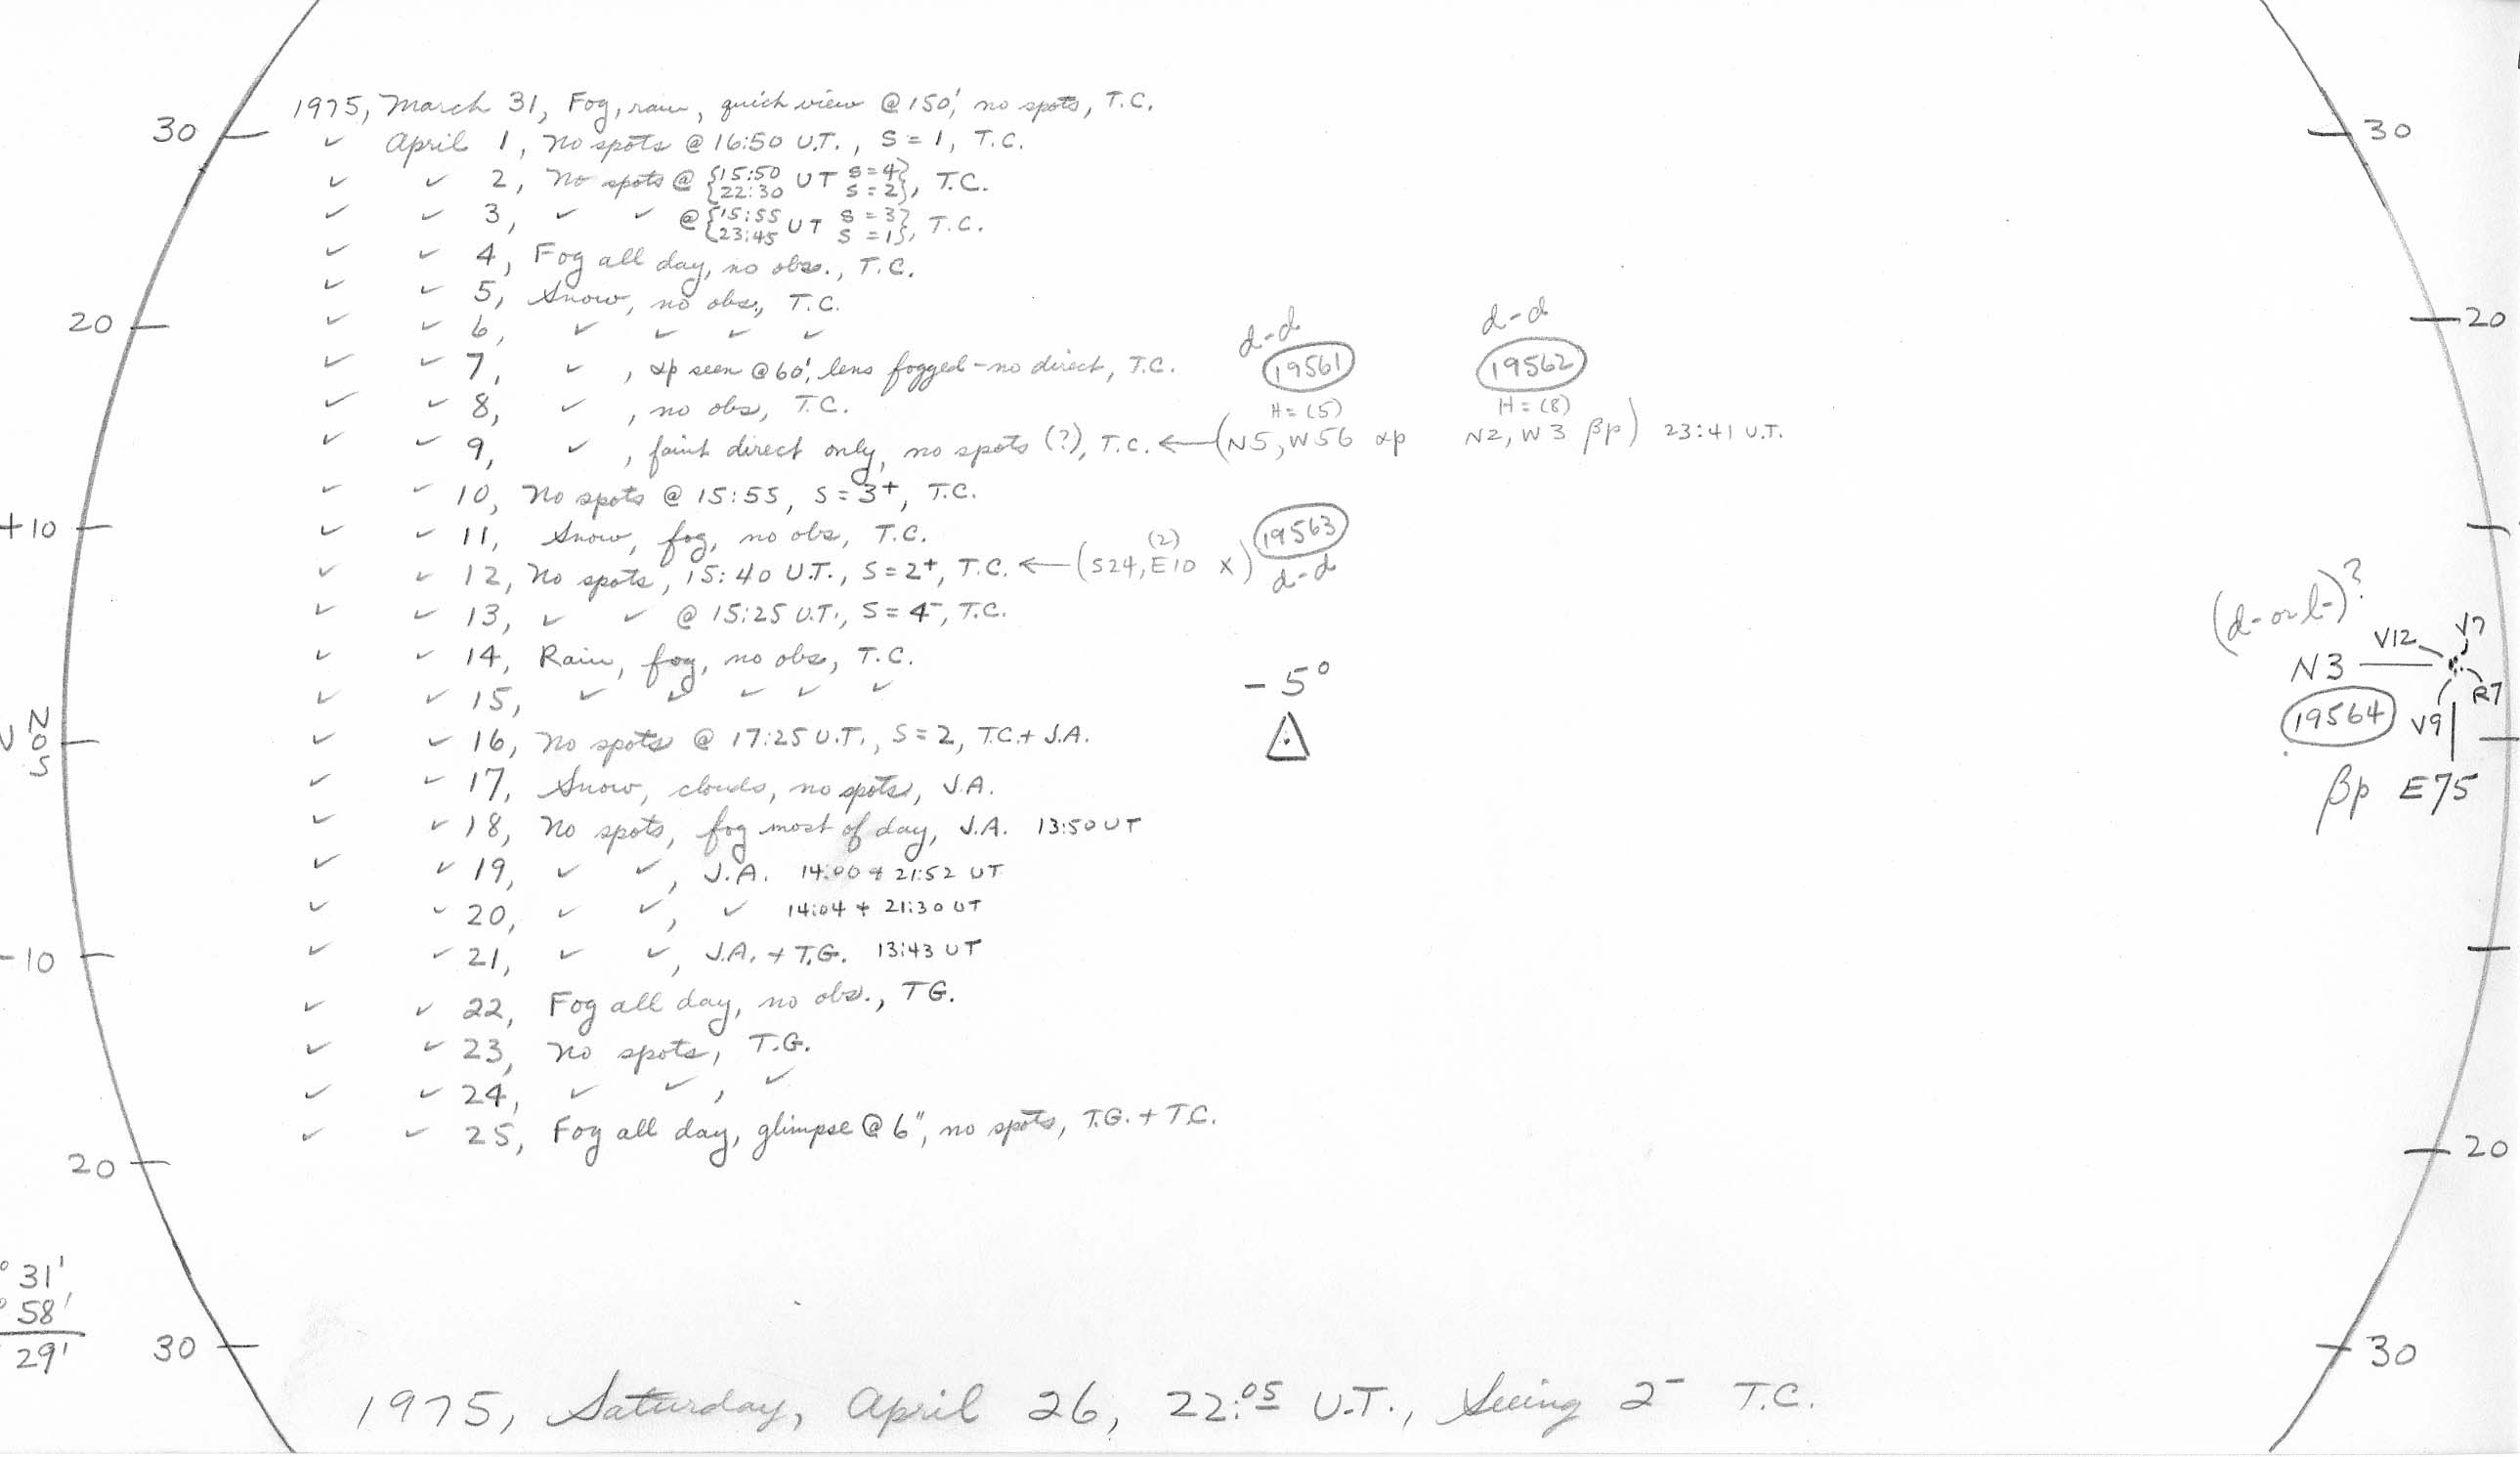 1975, March 31, Fog, rain, quick view @ 150', no spots, T.C.
✓ April 1, No spots @ 16:50 U.T., S = 1, T.C.
✓ ✓ 2, No spots @ {15:50 22:30} UT {S=4 S=2}, T.C.
✓ ✓ 3, ✓ ✓ @ {15:55 23:45} UT {S=3 S=1}, T.C.
✓ ✓ 4, Fog all day, no obs., T.C.
✓ ✓ 5, Snow, no obs., T.C.
✓ ✓ 6, ✓ ✓ ✓ ✓
d-d d-d
19561 19562
✓ ✓ 7, ✓, αp seen @ 60', lens fogged - no direct, T.C.
H = (5) H = (8)
✓ ✓ 8, ✓, no obs, T.C.
✓ ✓ 9, ✓, faint direct only, no spots (?), T.C. ← (N5, W56 αp N2, W3 βp) 23:41 U.T.
✓ ✓ 10, No spots @ 15:55, S = 3+, T.C.
✓ ✓ 11, Snow, fog, no obs, T.C.
19563
(2)
✓ ✓ 12, No spots, 15:40 U.T., S = 2+, T.C. ← (S24, E10 X)
d-d
✓ ✓ 13, ✓ ✓ @ 15:25 U.T., S = 4-, T.C.
✓ ✓ 14, Rain, fog, no obs, T.C.
✓ ✓ 15, ✓ ✓ ✓ ✓ ✓
✓ ✓ 16, No spots @ 17:25 U.T., S = 2, T.C. + J.A.
✓ ✓ 17, Snow, clouds, no spots, J.A.
✓ ✓ 18, No spots, fog most of day, J.A. 13:50 UT
✓ ✓ 19, ✓ ✓, J.A. 14:00 + 21:52 UT
✓ ✓ 20, ✓ ✓, ✓ 14:04 + 21:30 UT
✓ ✓ 21, ✓ ✓, J.A. + T.G. 13:43 UT
✓ ✓ 22, Fog all day, no obs., TG.
✓ ✓ 23, No spots, T.G.
✓ ✓ 24, ✓ ✓, ✓
✓ ✓ 25, Fog all day, glimpse @ 6", no spots, T.G. + T.C.
-5°
30
20
+10
N
0
S
-10
20
30
30
20
(d- or l-)?
V12 V7
N3
R7
19564 V9
βp E75
20
30
° 31'
° 58'
29'
1975, Saturday, April 26, 22:05 U.T., Seeing 2- T.C.